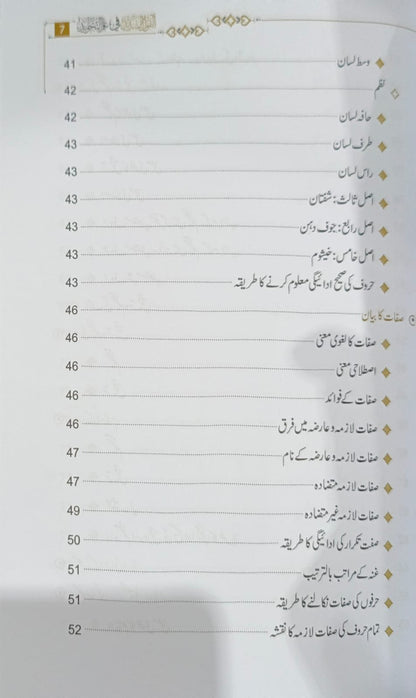 7
وسط لسان 41
نظم 42
حافہ لسان 42
طرف لسان 43
راس لسان 43
اصل ثالث: شفتان 43
اصل رابع: جوف دہن 43
اصل خامس: خیشوم 43
حروف کی صحیح ادائیگی معلوم کرنے کا طریقہ 43
صفات کا بیان 46
صفات کا لغوی معنی 46
اصطلاحی معنی 46
صفات کے فوائد 46
صفات لازمہ و عارضہ میں فرق 46
صفات لازمہ و عارضہ کے نام 47
صفات لازمہ متضادہ 47
صفات لازمہ غیر متضادہ 49
صفت تکرار کی ادائیگی کا طریقہ 50
غنہ کے مراتب بالترتیب 51
حرفوں کی صفات نکالنے کا طریقہ 51
تمام حروف کی صفات لازمہ کا نقشہ 52